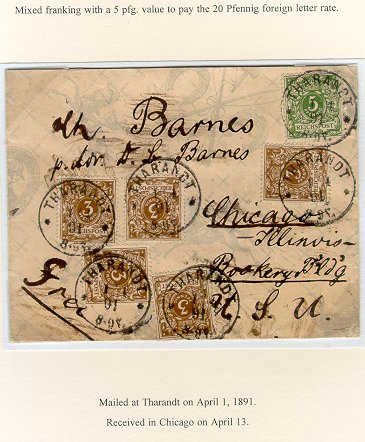 Mixed franking with a 5 pfg. value to pay the 20 Pfennig foreign letter rate.
Barnes
THARANDT
5
REICHSPOST
p. dor. D. L. Barnes
THARANDT
THARANDT
THARANDT
3
3
Chicago
Illinois
Rookery Bldg
THARANDT
THARANDT
Frei
U. S. U.
3
3
Mailed at Tharandt on April 1, 1891.
Received in Chicago on April 13.